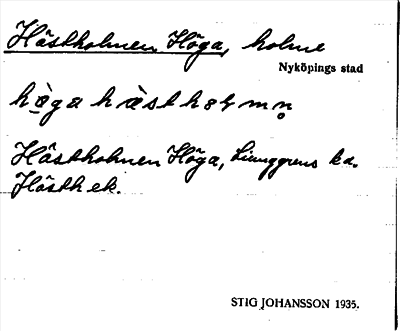 Hästholmen Höga, holme
Nyköpings stad
Hästholmen Höga, Ljunggrens ka.
Hästh ek.
STIG JOHANSSON 1935.